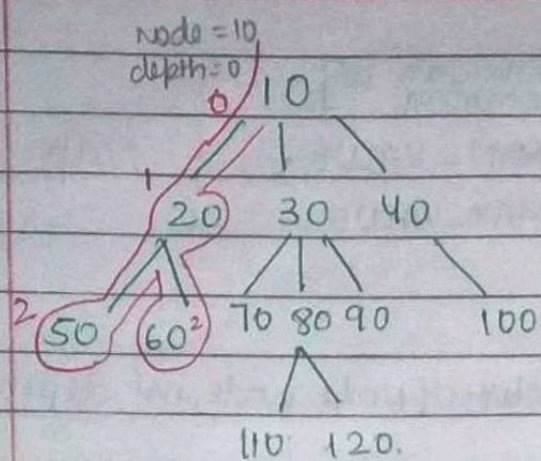 node = 10
depth = 0
0 10
1
20 30 40
2 50 60 2 70 80 90 100
110 120.